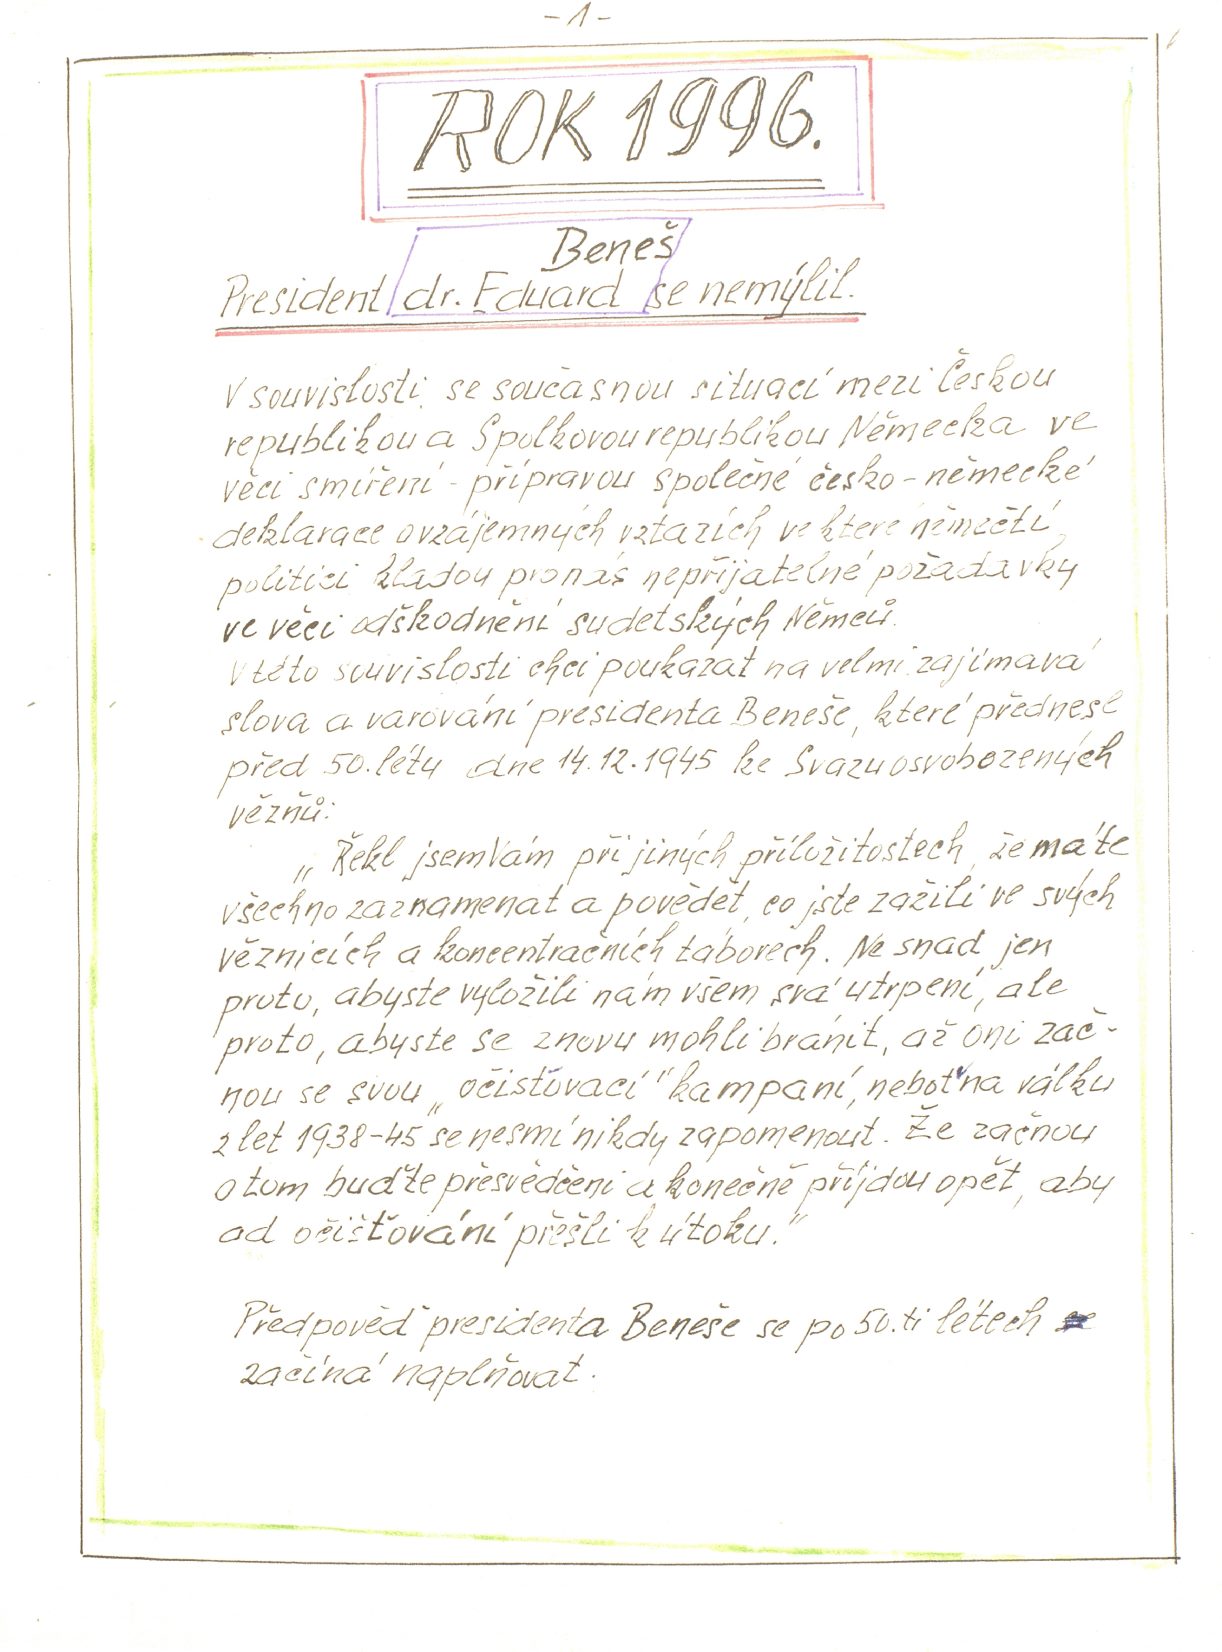 -1-
ROK 1996.
Beneš
President dr. Eduard se nemýlil.
V souvislosti se současnou situací mezi Českou
republikou a Spolkovou republikou Německa ve
věci smíření - přípravou společné česko-německé
deklarace o vzájemných vztazích ve které němečtí
politici kladou pro nás nepřijatelné požadavky
ve věci odškodnění sudetských Němců.
V této souvislosti chci poukázat na velmi zajímavá
slova a varování presidenta Beneše, které přednesl
před 50. léty dne 14.12.1945 ke Svazu osvobozených
věznů:
„Řekl jsem Vám při jiných příložitostech, že máte
všechno zaznamenat a povědět, co jste zažili ve svých
věznicích a koncentračních táborech. Ne snad jen
proto, abyste vyložili nám všem svá utrpení, ale
proto, abyste se znovu mohli bránit, až oni zač-
nou se svou „očisťovací“ kampaní, neboť na válku
z let 1938-45 se nesmí nikdy zapomenout. Že začnou
o tom buďte přesvědčeni a konečně příjdou opět, aby
od očišťování přešli k útoku.“
Předpověď presidenta Beneše se po 50.ti létech
začíná naplňovat.